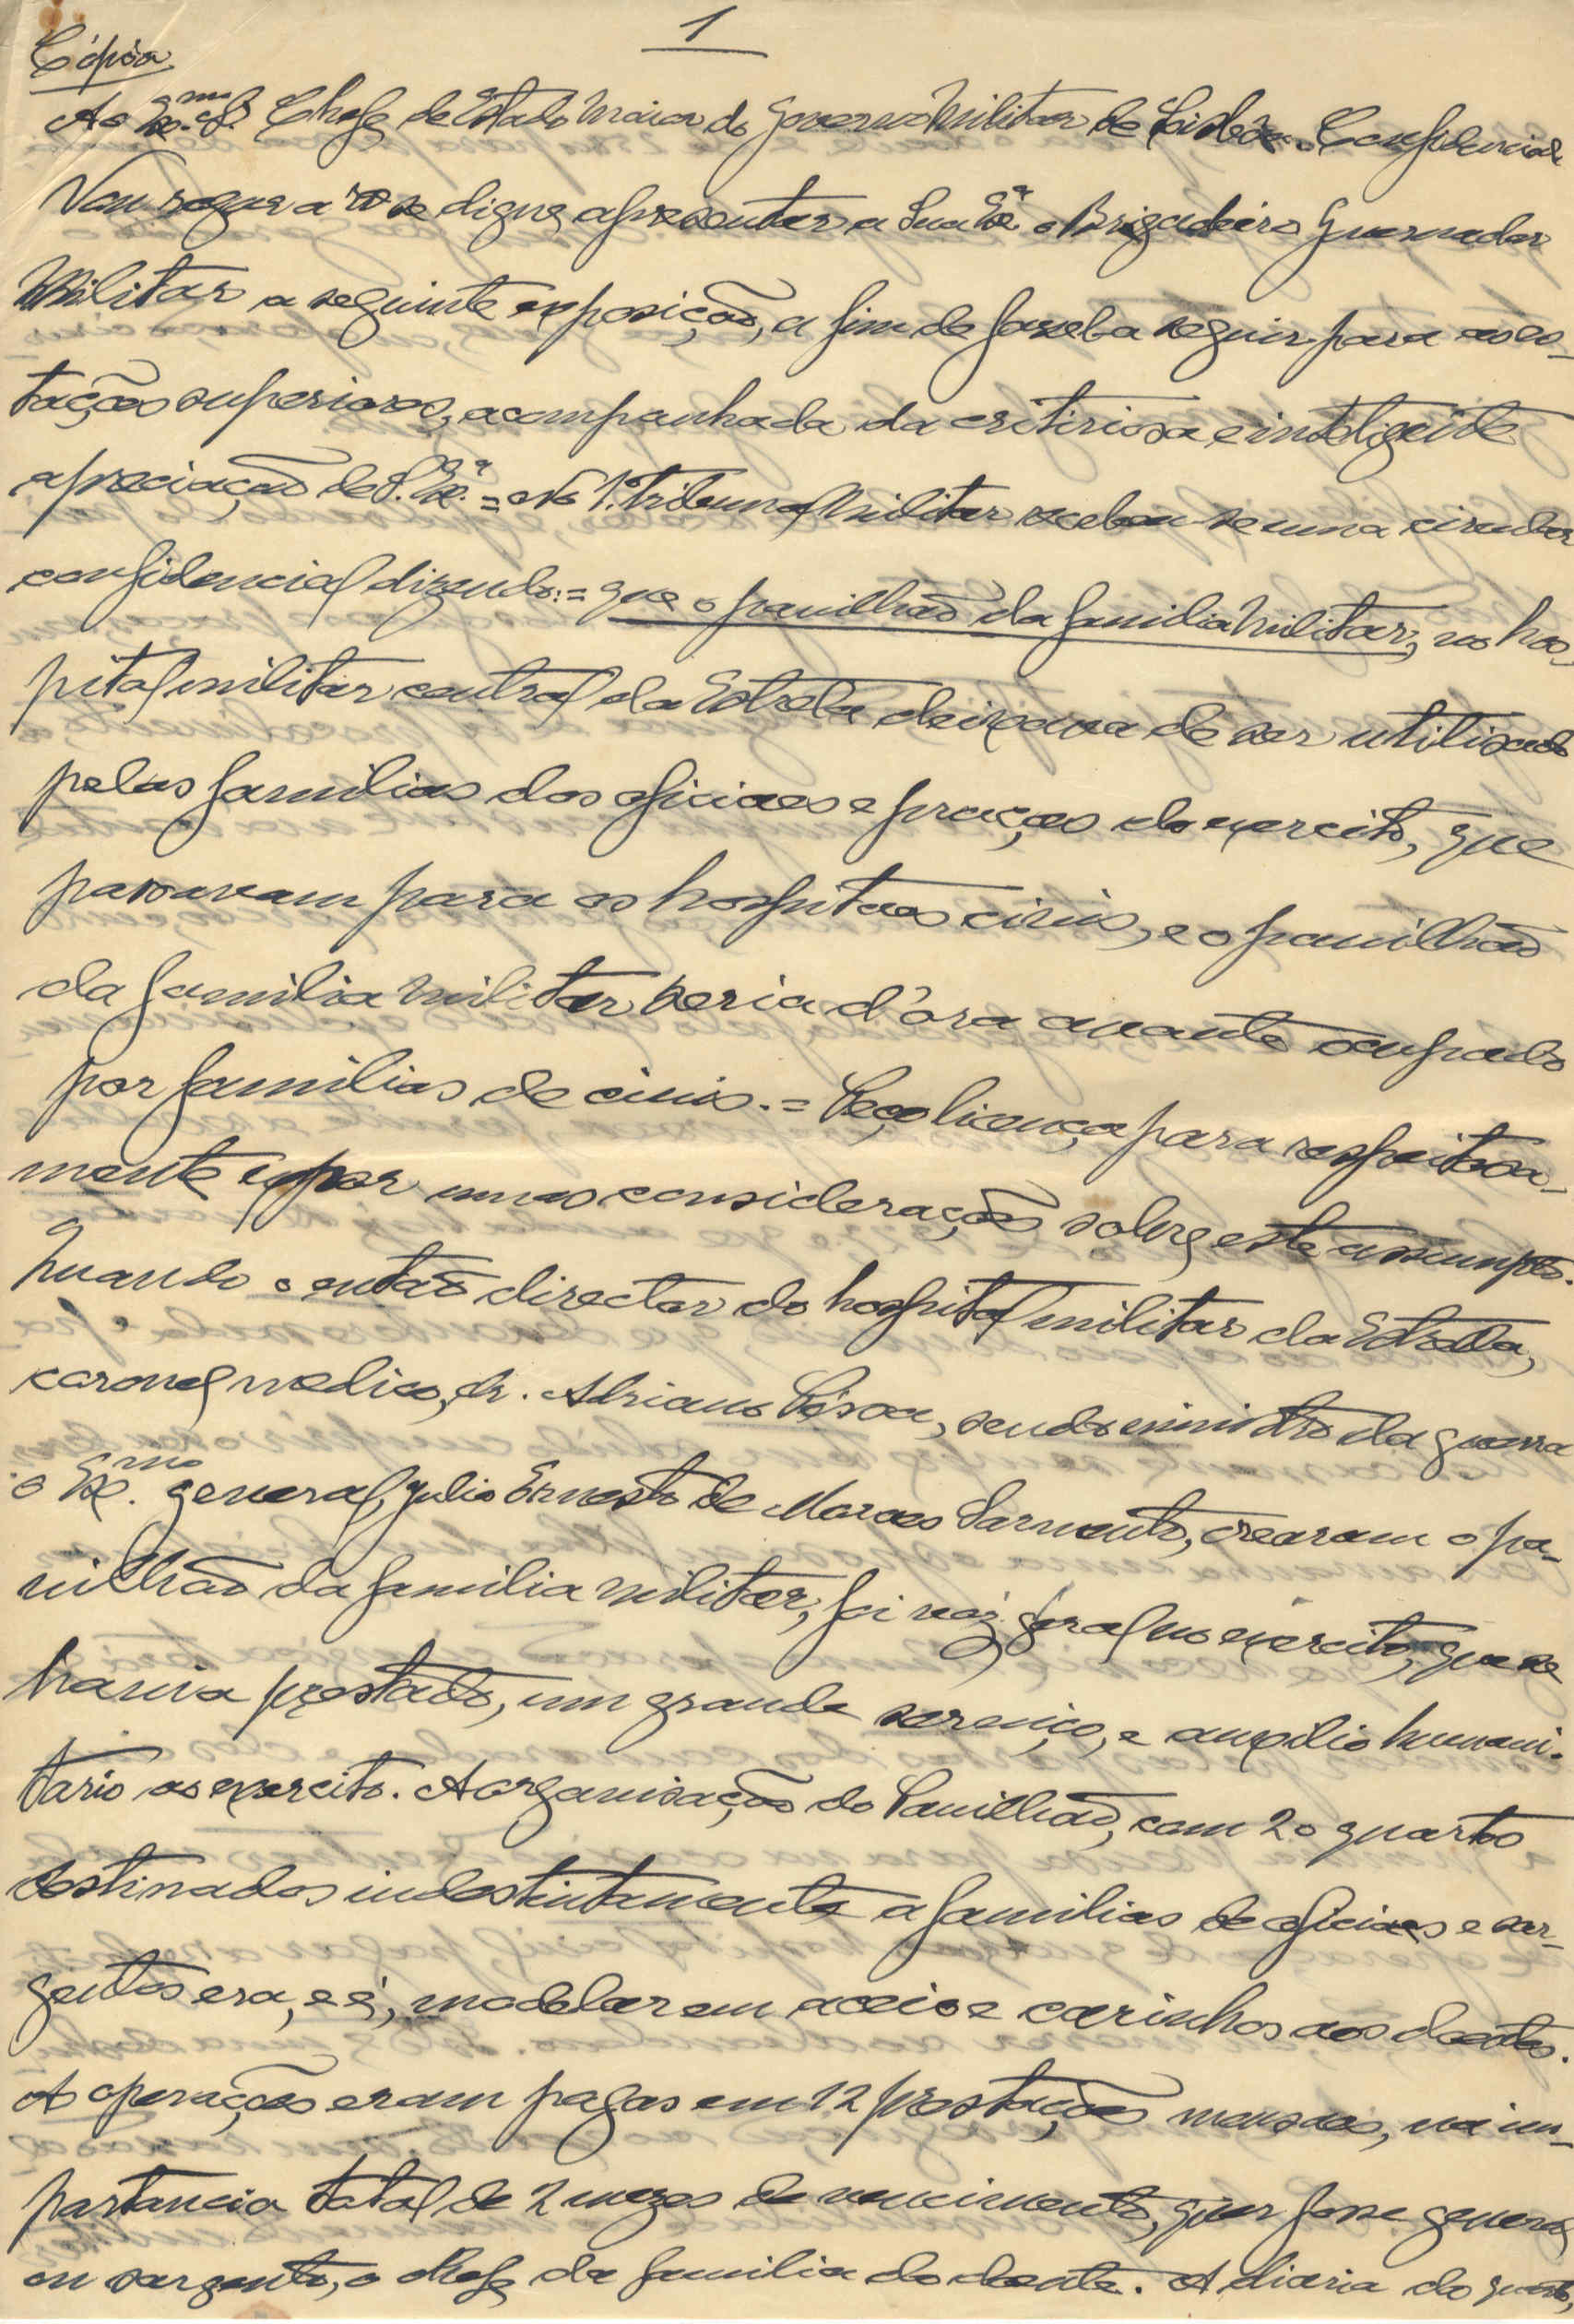 1
Cópia
Ao Exmo. Sr. Chefe de Estado Maior do Governo Militar de Lisboa. Confidencial
Vou rogar a V. se digne apresentar a Sua Exª o Brigadeiro Governador
Militar a seguinte exposição, a fim de fazel-a seguir para as es-
tações superiores, acompanhada da critiriosa e inteligente
apreciação de S. Exª. = No 1º. Tribunal Militar recebeu-se uma circular
confidencial dizendo: = que o pavilhão da familia Militar, no hos-
pital militar central da Estrela deixava de ser utilisado
pelas familias dos oficiaes e praças do exercito, que
passavam para os hospitaes civis, e o pavilhão
da familia militar seria d'óra avante ocupado
por familias de civis. = Peço licença para respeitosa-
mente expor umas considerações sobre este assumpto.
Quando o então director do hospital militar da Estrela,
coronel medico, dr. Adriano Pósoa, sendo ministro da guerra
o Exmo. general, Julio Ernesto de Moraes Sarmento, crearam o pa-
vilhão da familia militar, foi voz geral no exercito, que se
havia prestado, um grande serviço, e auxilio humani-
tario ao exercito. A organisação do Pavilhão, com 20 quartos
destinados indestintamente a familias de oficiaes e sar-
gentos era, e é, modelar em aceio e carinhos aos doentes.
As operações eram pagas em 12 prestações mensaes, na im-
portancia total de 2 mezes de vencimento, quer fosse general
ou sargento, o chefe da familia do doente. A diaria do quarto,